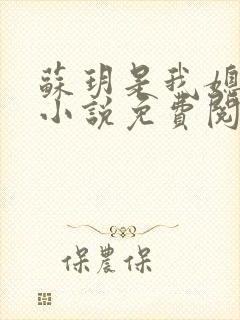 蘇玥是我媳
小說免費閱
保農保